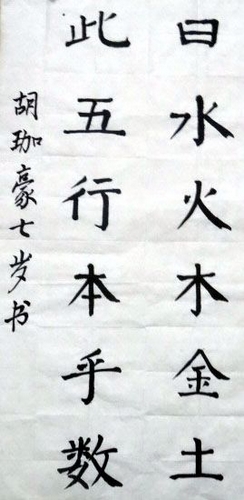 曰水火木金土
此五行本乎数
胡珈豪七岁书